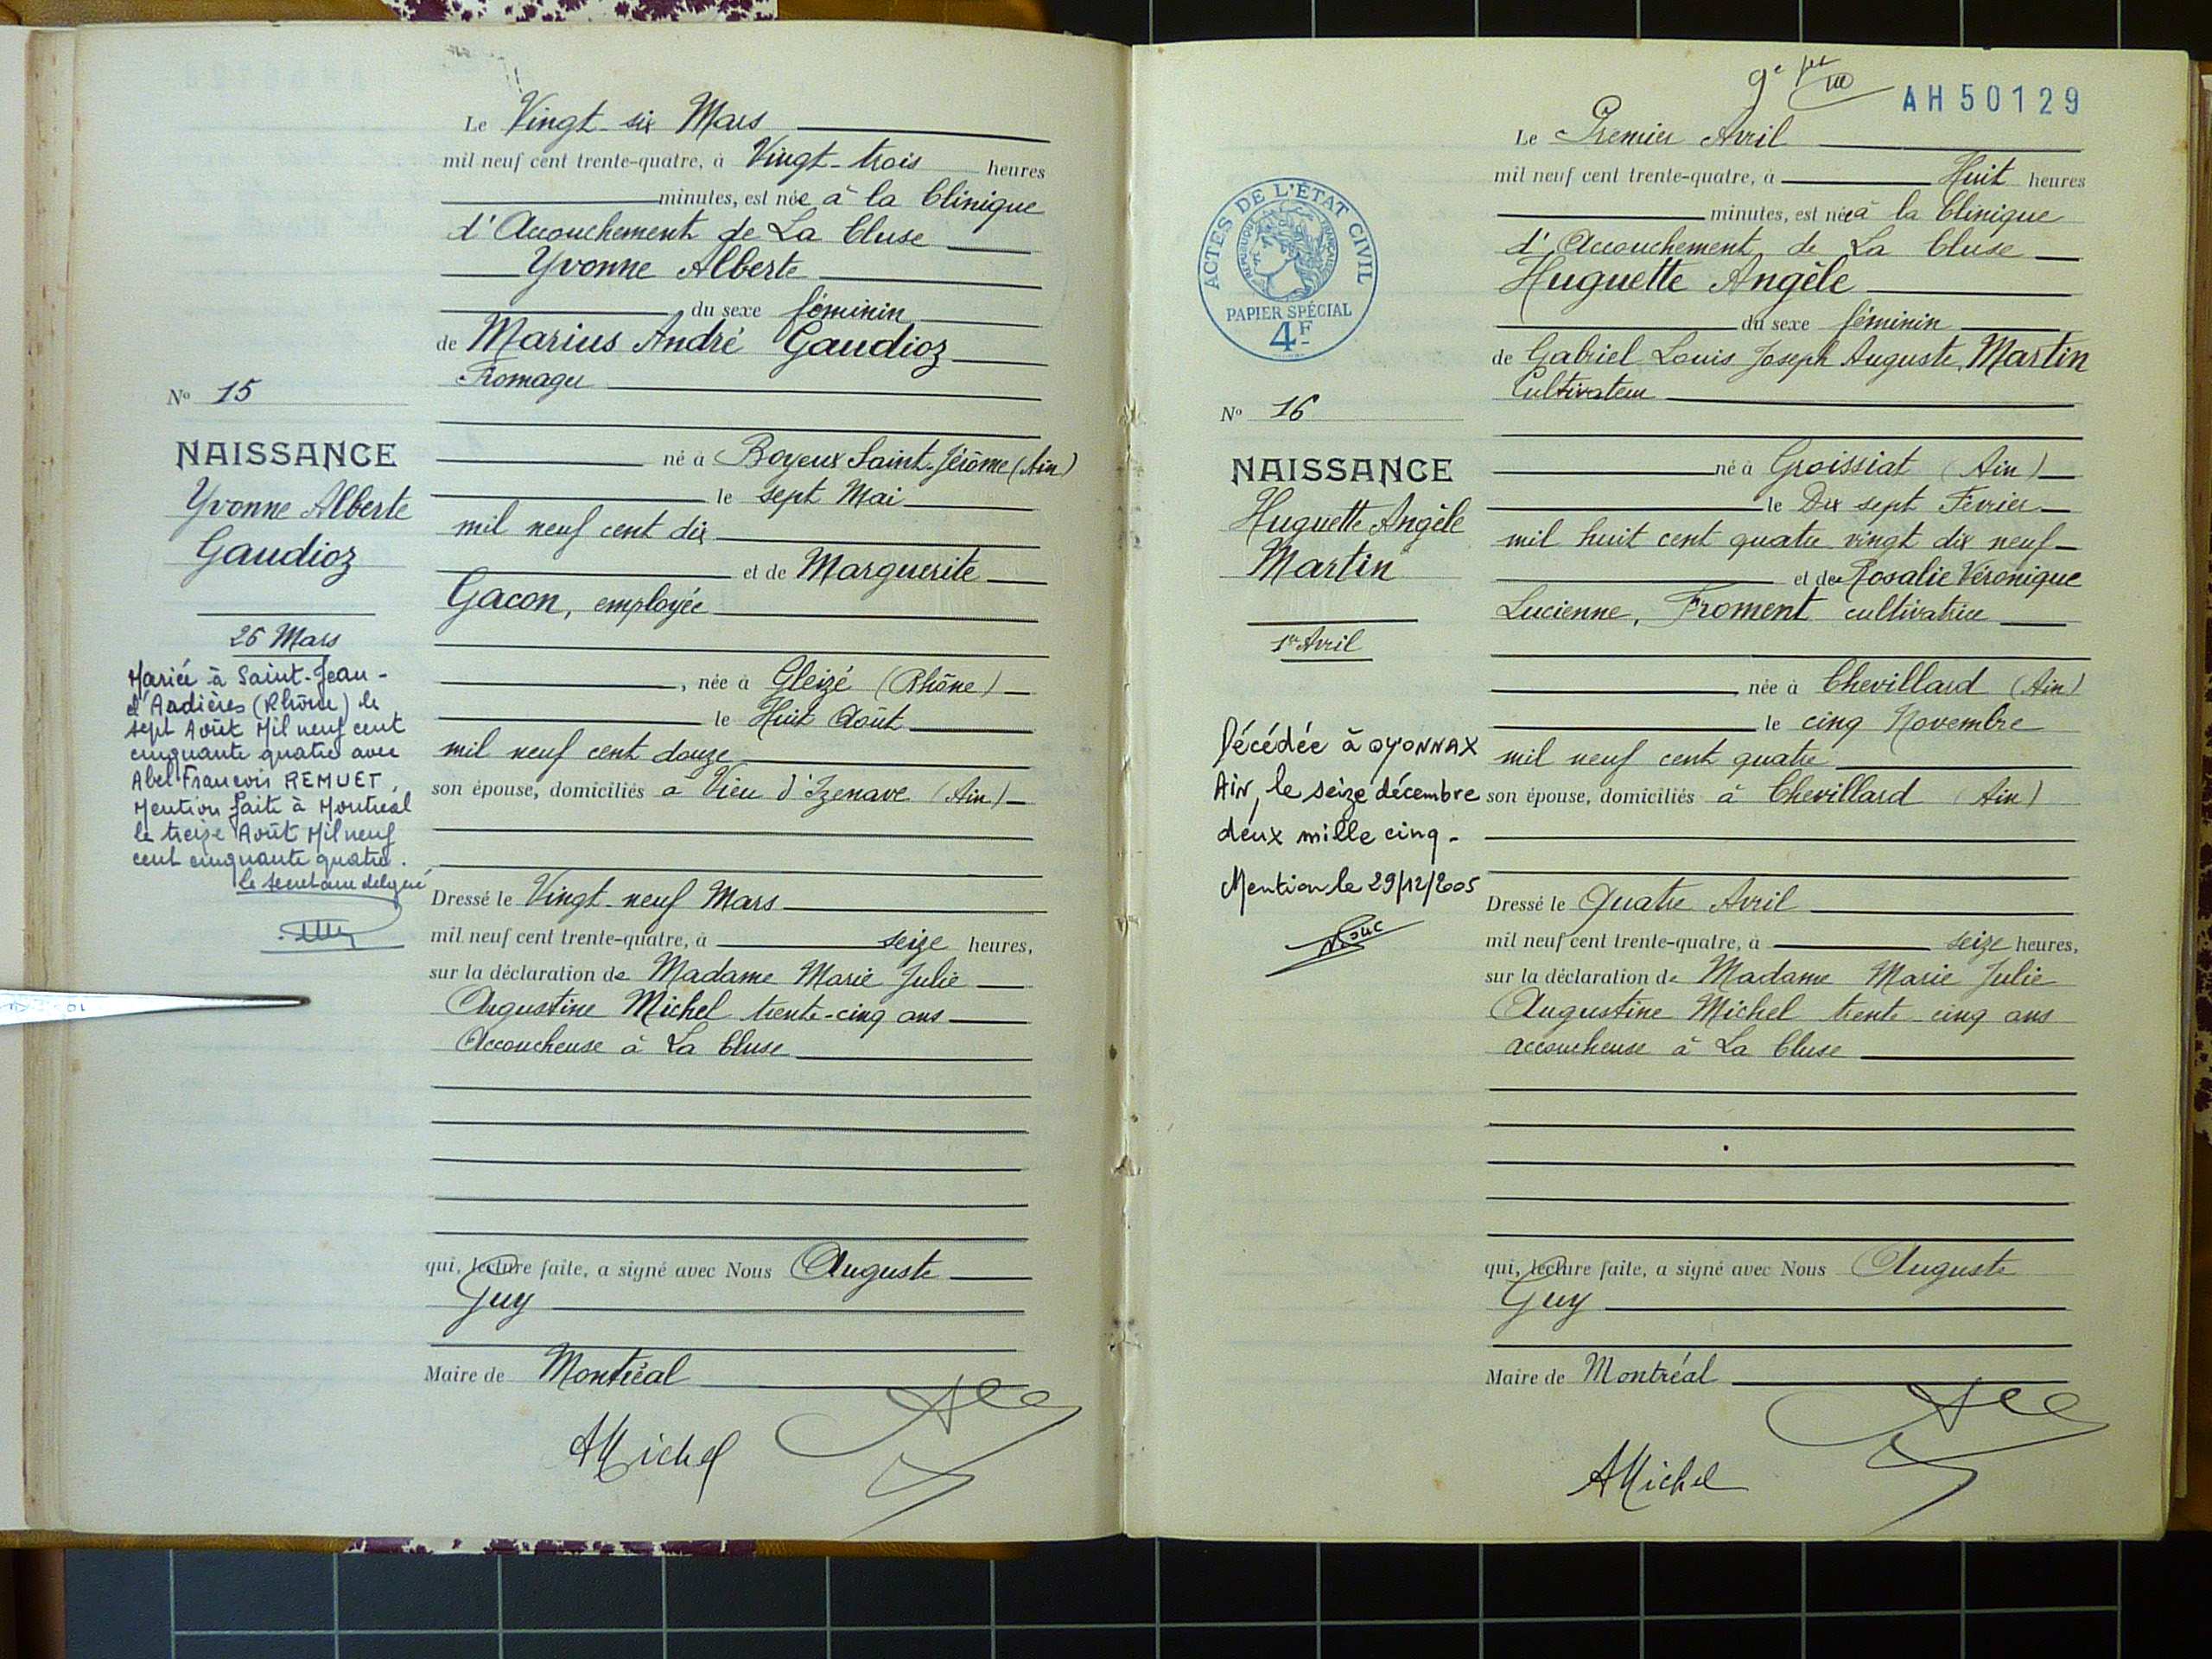 Le Vingt-six Mars
mil neuf cent trente-quatre, à Vingt-trois heures
minutes, est née à la Clinique
d'Accouchement de La Cluse
Yvonne Alberte
du sexe féminin
de Marius André Gaudioz
Fromager
né à Boyeux Saint-Jérôme (Ain)
le sept Mai
mil neuf cent dix
et de Marguerite
Gacon, employée
, née à Gleizé (Rhône)
le Huit Août
mil neuf cent douze
son épouse, domiciliés à Vieu d'Izenave (Ain)
Dressé le Vingt-neuf Mars
mil neuf cent trente-quatre, à seize heures,
sur la déclaration de Madame Marie Julie
Augustine Michel trente-cinq ans
Accoucheuse à La Cluse
qui, lecture faite, a signé avec Nous Auguste
Guy
Maire de Montréal
AMichel
No 15
NAISSANCE
Yvonne Alberte
Gaudioz
26 Mars
Mariée à Saint-Jean-
d'Ardières (Rhône) le
sept Août Mil neuf cent
cinquante quatre avec
Abel François REMUET.
Mention faite à Montréal
le treize Août Mil neuf
cent cinquante quatre.
Le secrétaire délégué
AH 50129
Le Premier Avril
mil neuf cent trente-quatre, à Huit heures
minutes, est née à la Clinique
d'Accouchement de La Cluse
Huguette Angèle
du sexe féminin
de Gabriel Louis Joseph Auguste, Martin
Cultivateur
né à Groissiat (Ain)
le Dix sept Février
mil huit cent quatre vingt dix neuf
et de Rosalie Véronique
Lucienne, Froment cultivatrice
, née à Chevillard (Ain)
le cinq Novembre
mil neuf cent quatre
son épouse, domiciliés à Chevillard (Ain)
Dressé le Quatre Avril
mil neuf cent trente-quatre, à seize heures,
sur la déclaration de Madame Marie Julie
Augustine Michel trente-cinq ans
accoucheuse à La Cluse
qui, lecture faite, a signé avec Nous Auguste
Guy
Maire de Montréal
AMichel
ACTES DE L'ÉTAT CIVIL
RÉPUBLIQUE FRANÇAISE
PAPIER SPÉCIAL
4F
No 16
NAISSANCE
Huguette Angèle
Martin
1er Avril
Décédée à OYONNAX
AIN, le seize décembre
deux mille cinq -
Mention le 29/12/2005